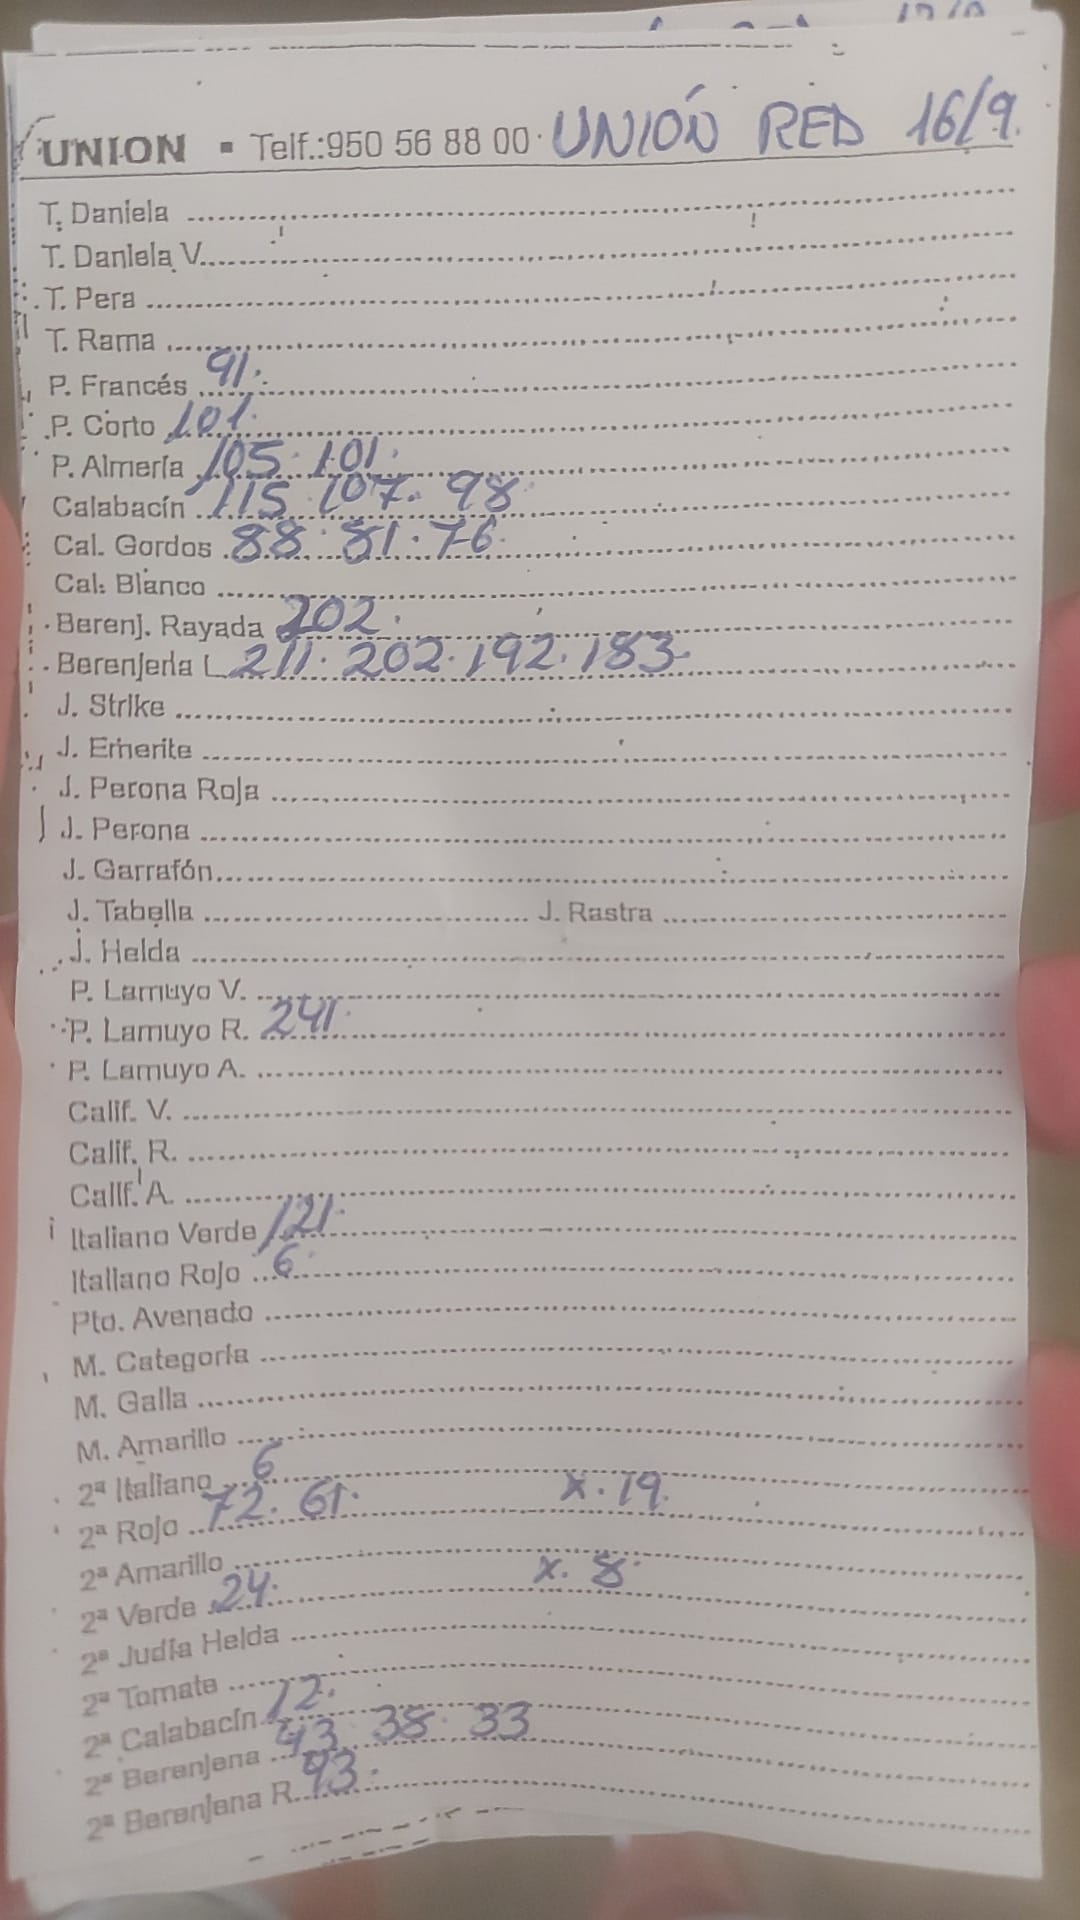 UNION ▪ Telf.:950 56 88 00 · UNIÓN RED 16/9.
T. Daniela
T. Daniela V.
T. Pera
T. Rama
P. Francés 91.
P. Corto 101.
P. Almería 105. 101.
Calabacín 115 107. 98
Cal. Gordos 88. 81. 76.
Cal. Blanco
Berenj. Rayada 202.
Berenjena L 211. 202. 192. 183.
J. Strike
J. Emerite
J. Perona Roja
J. Perona
J. Garrafón
J. Tabella J. Rastra
J. Helda
P. Lamuyo V.
P. Lamuyo R. 241.
P. Lamuyo A.
Calif. V.
Calif. R.
Calif. A.
Italiano Verde 121.
Italiano Rojo 6.
Pto. Avenado
M. Categoría
M. Galia
M. Amarillo
2ª Italiano 6
2ª Rojo 72. 61. x. 19.
2ª Amarillo
2ª Verde 24. x. 8.
2ª Judía Helda
2ª Tomate
2ª Calabacín 12.
2ª Berenjena 43. 38. 33
2ª Berenjena R. 43.